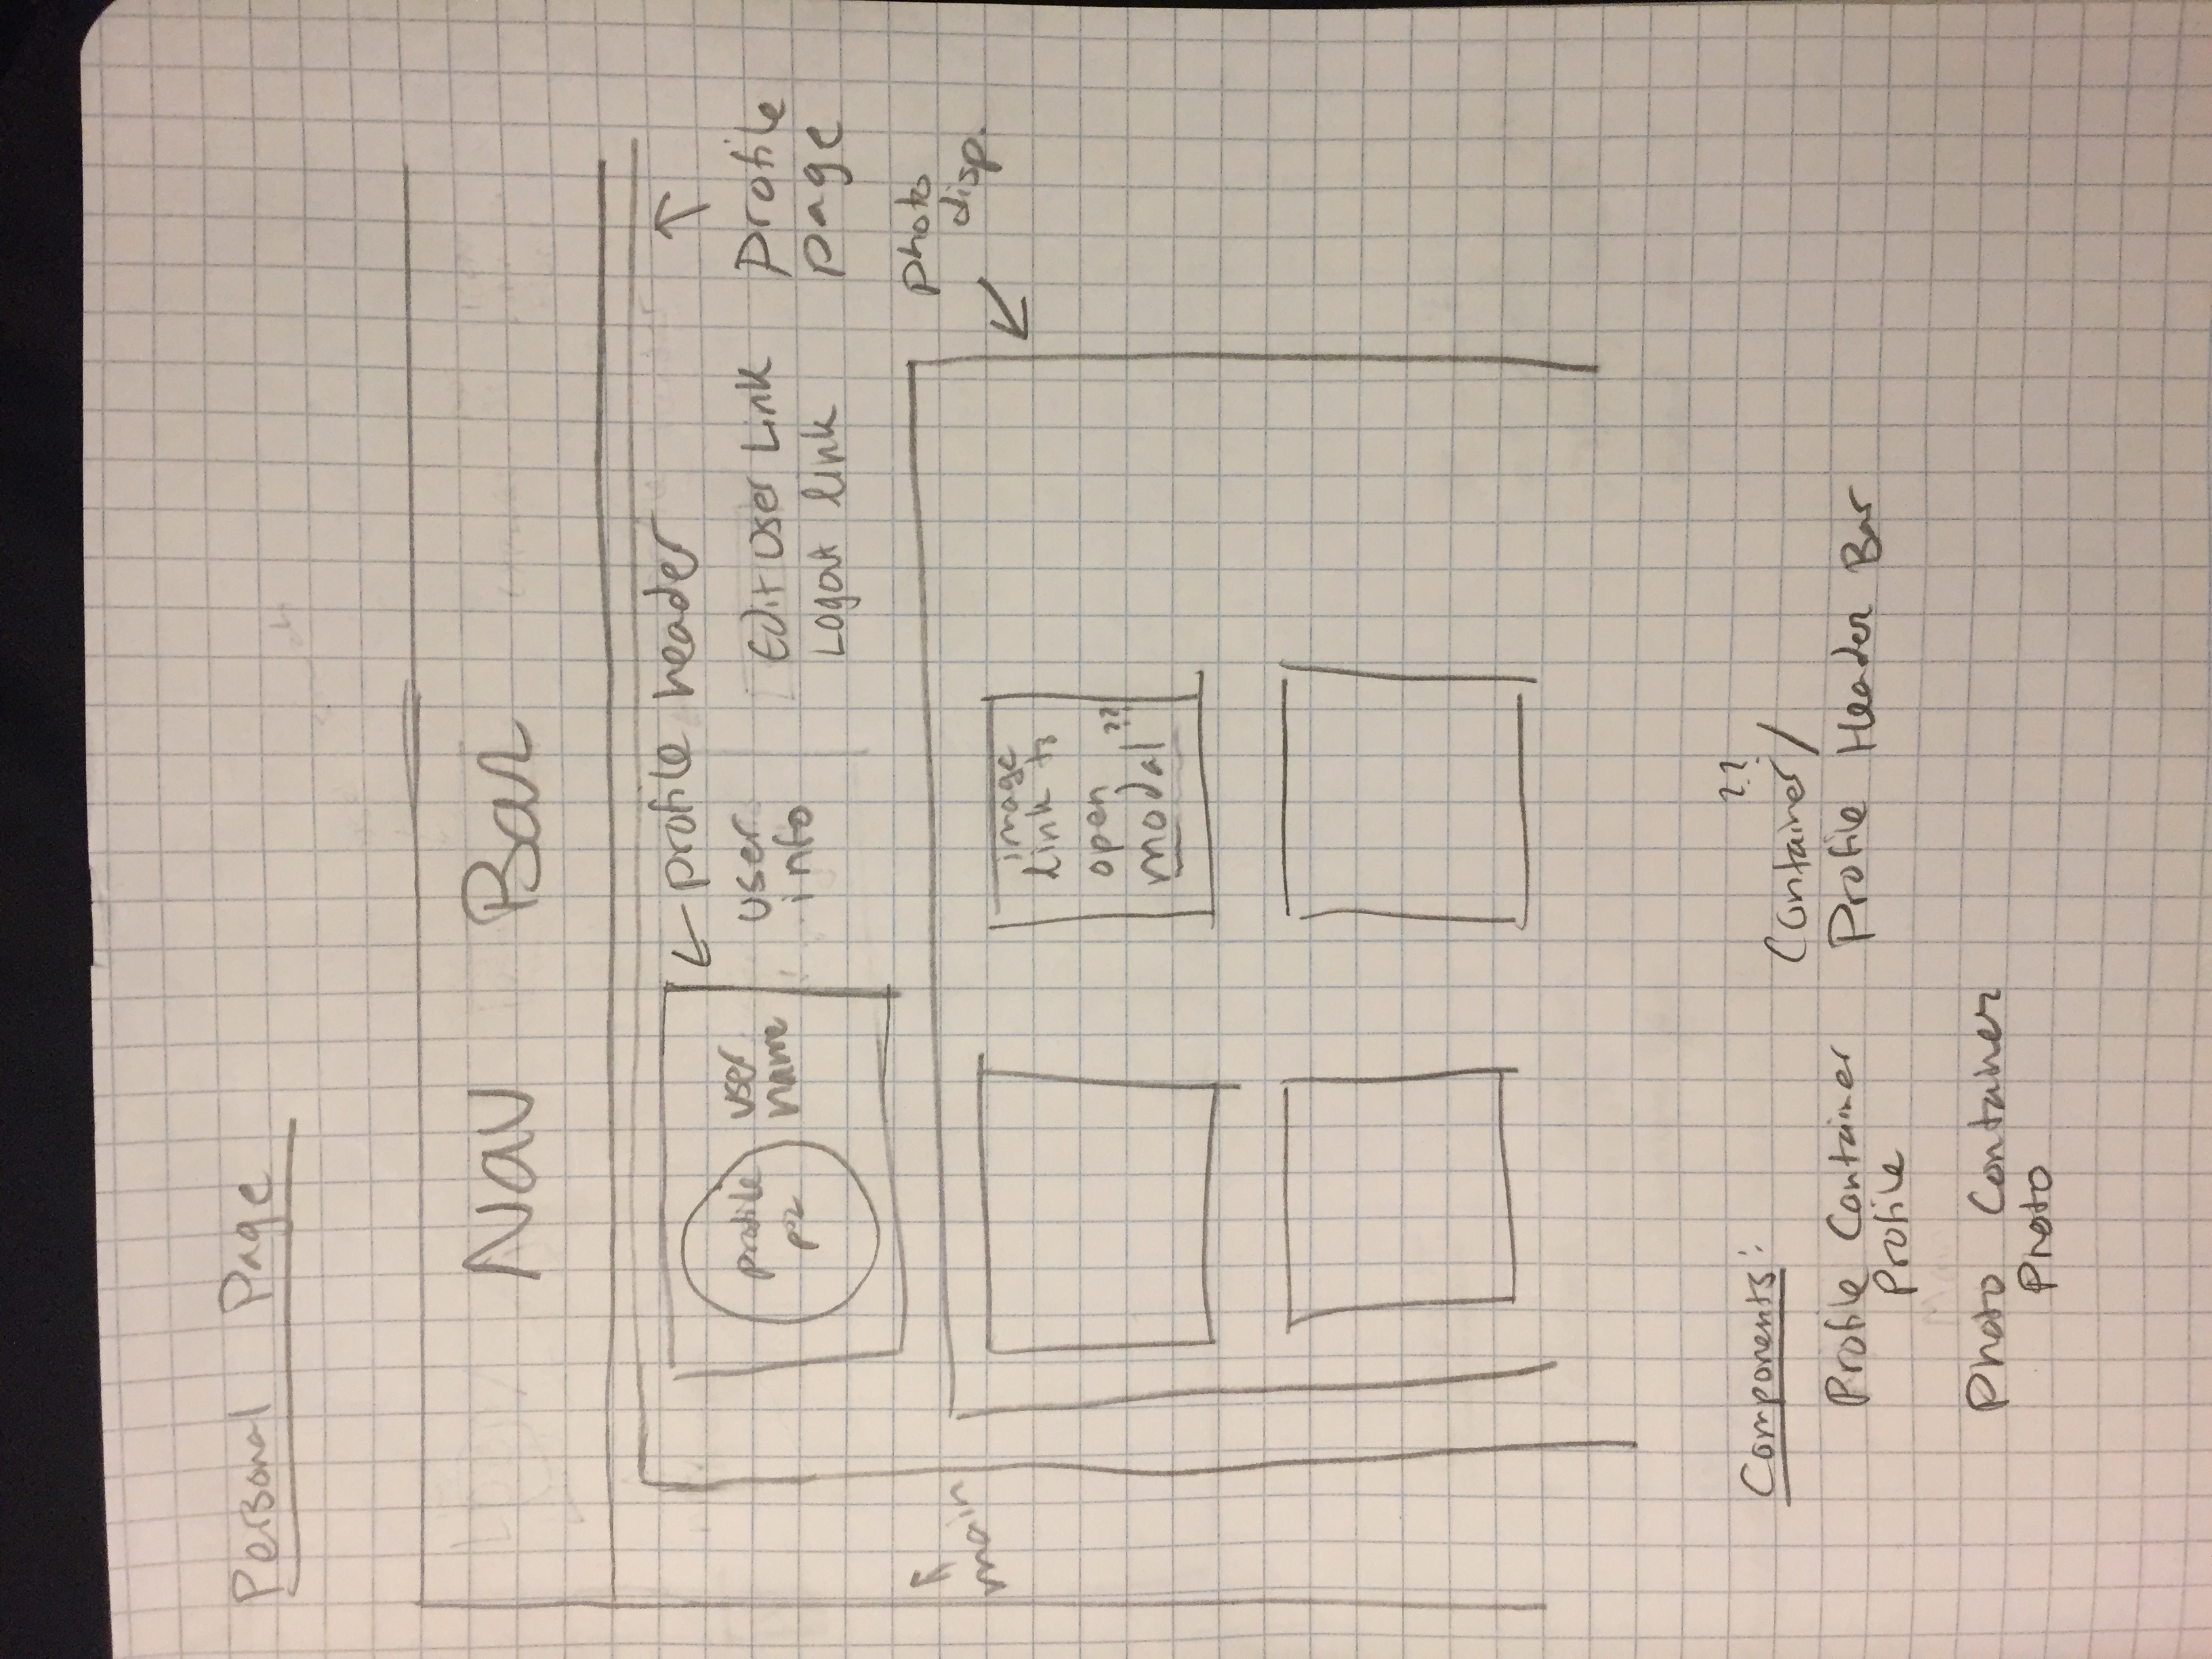 Personal Page
Nav Bar
← profile header
profile
pic
user
name
user
info
Edit User Link
Logout link
Profile
page
main
photo
disp.
image
link to
open
modal ??
Components:
Profile Container
Profile
Photo Container
Photo
??
Container/
Profile Header Bar